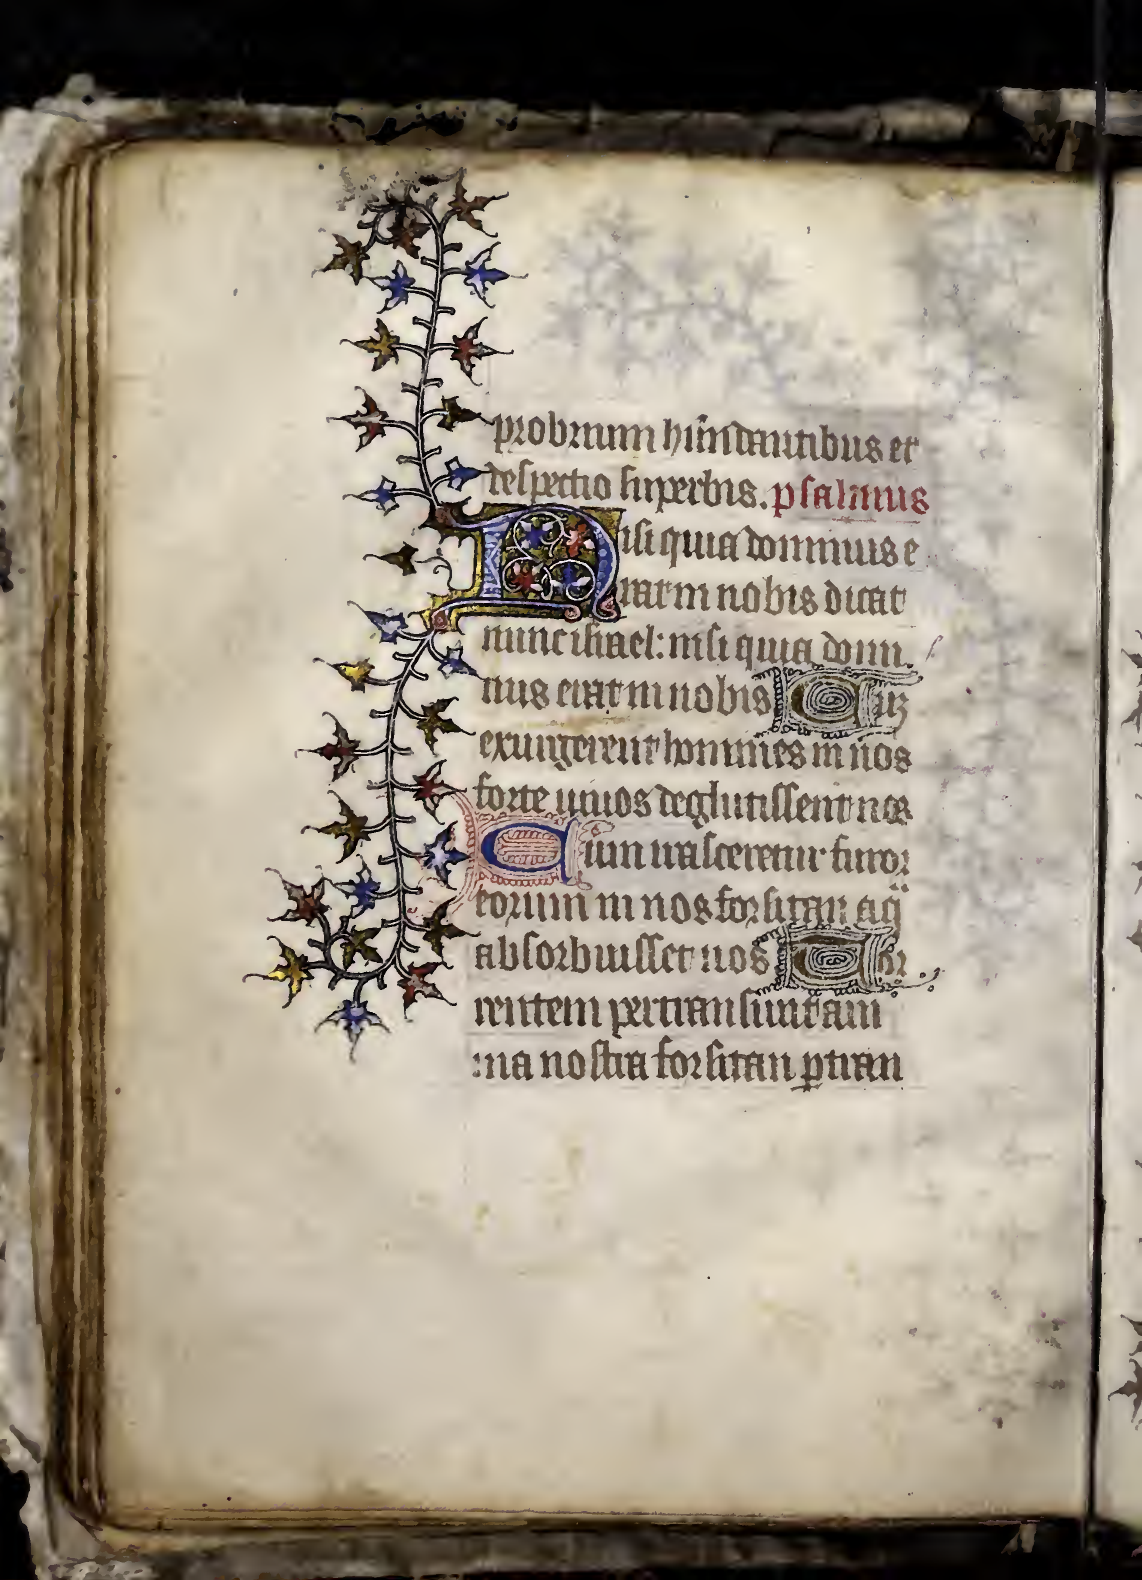 probrium hũndantibus et
despectio superbis. psalmus
Nisi quia dominus e
rat in nobis dicat
nunc israel: nisi quia domi
nus erat in nobis Cū
exurgerent homines in nos
forte uiuos deglutissent nos
Cum irasceretur furor
eorum in nos forsitan aq̃
absorbuisset nos Tor
rentem pertransiuit ani
ma nostra forsitan ꝑtran